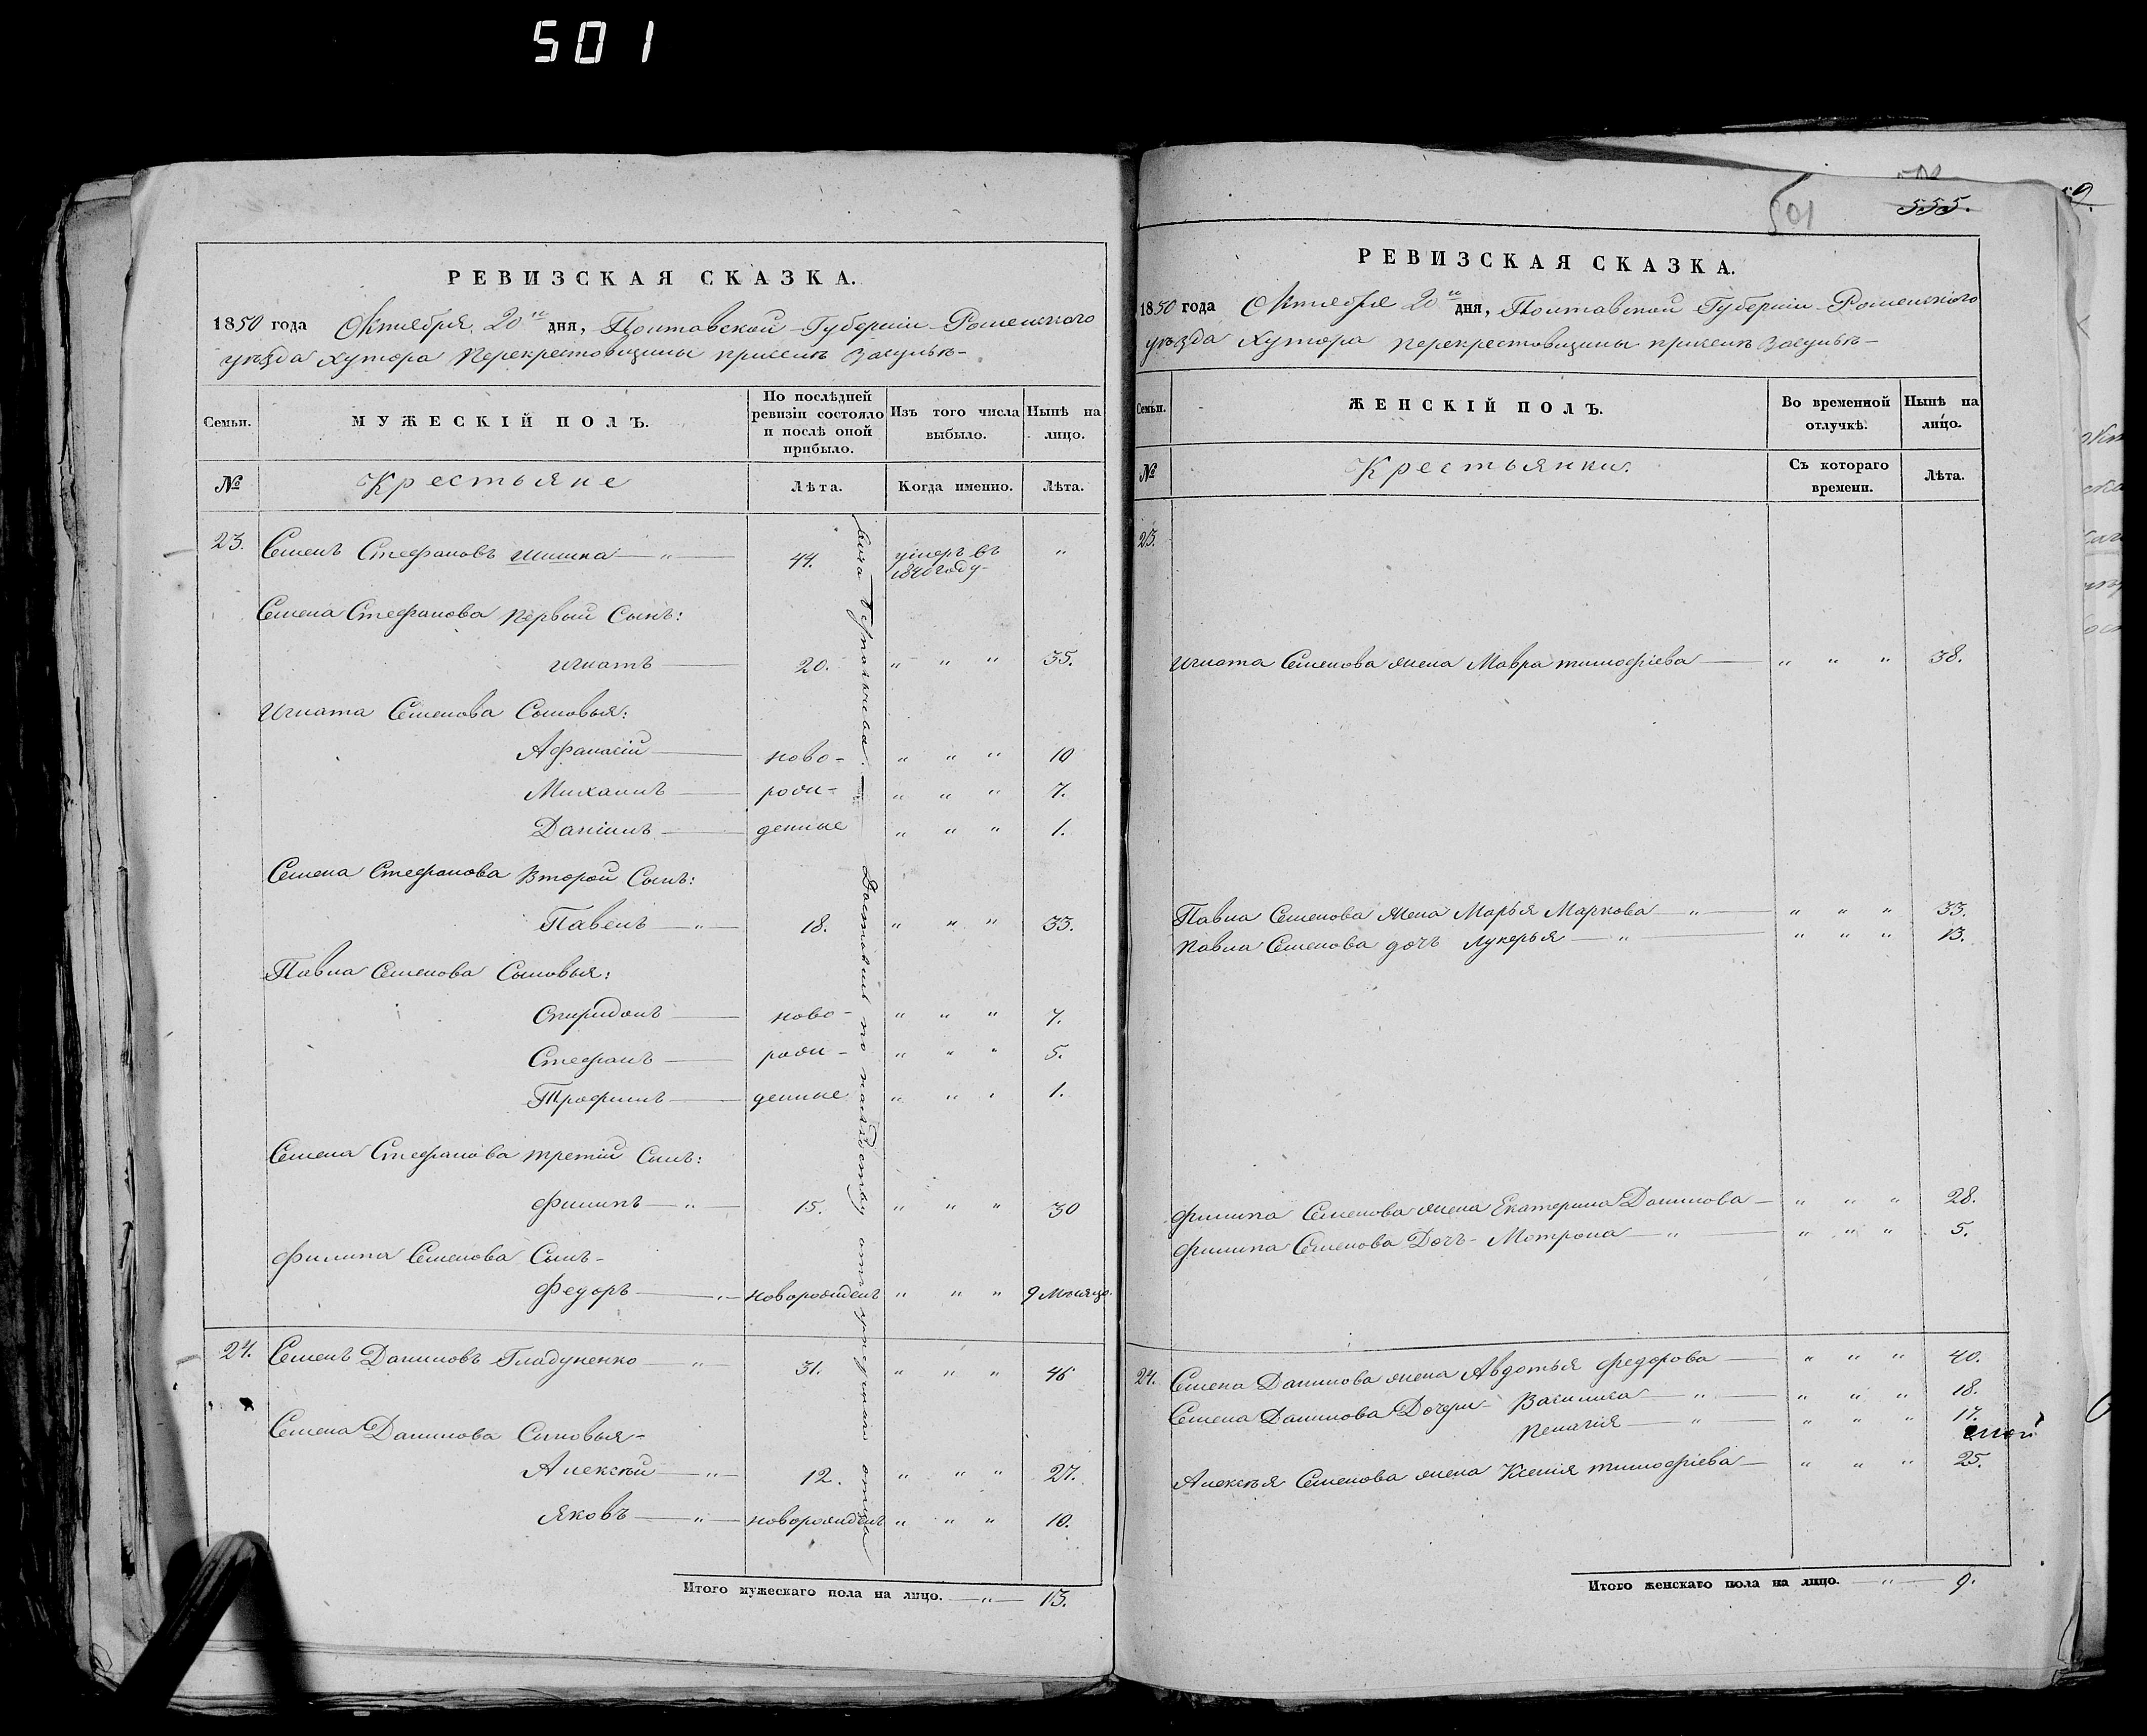 501
РЕВИЗСКАЯ СКАЗКА.
1850 года Октября 20го дня, Полтавской Губерніи Роменского
уѣзда Хутора Перекрестовщины при селѣ Засульѣ-
Семьи. МУЖЕСКІЙ ПОЛЪ. По послѣдней ревизіи состояло и послѣ оной прибыло. Изъ того числа выбыло. Нынѣ на лицо.
№ Крестьяне Лѣта. Когда именно. Лѣта.
23. Семенъ Стефановъ Шишка — " — 44. умеръ въ "
году-
Семена Стефанова Первый Сынъ:
Игнатъ — 20. " " " 35.
Игната Семенова Сыновья:
Афанасій — ново- " " " 10
Михаилъ — рож- " " " 7.
Даніилъ — денные " " " 1.
Семена Стефанова Второй Сынъ:
Павелъ — " — 18. " " " 33.
Павла Семенова Сыновья:
Спиридонъ — ново- " " " 7.
Стефанъ — рож- " " " 5.
Трофимъ — денные " " " 1.
Семена Стефанова третій Сынъ:
Филипъ — " — 15. " " " 30
Филипа Семенова Сынъ-
Федоръ — " — новорожденъ " " " 9 Мѣсяцо.
24. Семенъ Даниловъ Гладченко — " — 31. " " " 46
Семена Данилова Сыновья-
Алексѣй — " — 12. " " " 27.
Яковъ — " — новорожденъ " " " 10.
Итого мужескаго пола на лицо. — " — 13.
Достались по наслѣдству отца
501
555.
РЕВИЗСКАЯ СКАЗКА.
1850 года Октября 20го дня, Полтавской Губерніи Роменского
уѣзда Хутора Перекрестовщины при селѣ Засульѣ-
Семьи. ЖЕНСКІЙ ПОЛЪ. Во временной отлучкѣ. Нынѣ на лицо.
№ Крестьянки. Съ котораго времени. Лѣта.
23.
Игната Семенова жена Мавра Тимофіева — " " " 38.
Павла Семенова жена Марья Маркова — " — " " " 33.
Павла Семенова дочь Лукерья — " — " " " 13.
Филипа Семенова жена Екатерина Данилова — " " " 28.
Филипа Семенова Дочь- Мотрона — " — " " " 5.
24. Семена Данилова жена Авдотья Федорова — " " " 40.
Семена Данилова Дочери- Василиса — " — " " " 18.
Пелагія — " — " " " 17.
Алексѣя Семенова жена Ксенія Тимофіева — " " " 25.
Итого женскаго пола на лицо. — " — 9.